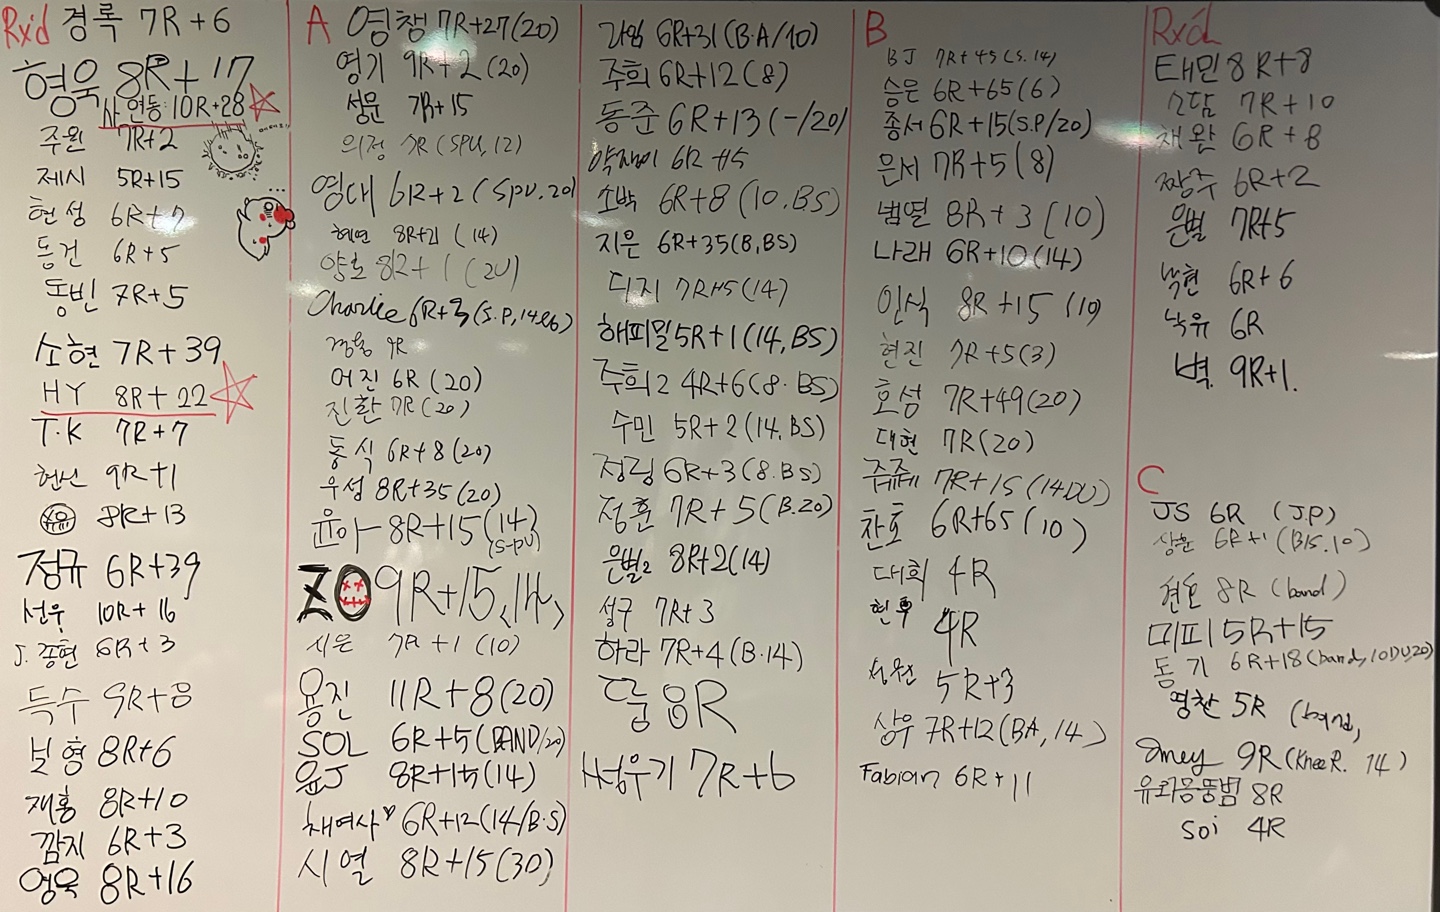 Rx'd 경록 7R+6
형욱 8R+17
사 연동:10R+28
주원 7R+2
제시 5R+15
현성 6R+7
동건 6R+5
동빈 7R+5
소현 7R+39
HY 8R+22
T.K 7R+7
현난 9R+1
8R+13
정규 6R+39
선우 10R+16
J. 종현 6R+3
득수 9R+8
보형 8R+6
재홍 8R+10
깜지 6R+3
영욱 8R+16
A 영챙 7R+27(20)
영기 9R+2(20)
성문 7R+15
의정 7R(SPU,12)
영대 6R+2(SPU.20)
혜연 8R+21(14)
양호 8R+1(20)
Charlie 6R+3(S.P,14lb)
9R
어진 6R(20)
진환 7R(20)
동식 6R+8(20)
우성 8R+35(20)
윤아 8R+15(14)
(S-PU)
ZO 9R+15,(14)
시은 7R+1(10)
용진 11R+8(20)
SOL 6R+5(BAND/20)
윤J 8R+15(14)
채여사♥ 6R+12(14/B.S)
시열 8R+15(30)
6R+31(B.A/10)
주희 6R+12(8)
동준 6R+13(-/20)
약쟁이 6R+5
소박 6R+8(10.BS)
지은 6R+35(B,BS)
디지 7R+5(14)
해피밀 5R+1(14,BS)
주희2 4R+6(8.BS)
수민 5R+2(14.BS)
정링 6R+3(8.BS)
정훈 7R+5(B.20)
은별2 8R+2(14)
성구 7R+3
하라 7R+4(B.14)
8R
성우기 7R+6
B
BJ 7R+45(S.14)
승은 6R+65(6)
종서 6R+15(S.P/20)
은서 7R+5(8)
범열 8R+3(10)
나래 6R+10(14)
인식 8R+15(10)
현진 7R+5(3)
호성 7R+49(20)
대현 7R(20)
쥬쥬 7R+15(14DU)
찬호 6R+65(10)
대희 4R
현후 4R
성원 5R+3
상우 7R+12(BA,14)
Fabian 6R+11
Rx'd
태민 8R+8
소담 7R+10
재완 6R+8
짱주 6R+2
은별 7R+5
낙현 6R+6
낙유 6R
벽 9R+1.
C
JS 6R (J.P)
상훈 6R+1(B/S.10)
현호 8R(band)
미피 5R+15
동기 6R+18(band,10DU,20)
명찬 5R
9R(knee R. 14)
8R
Soi 4R